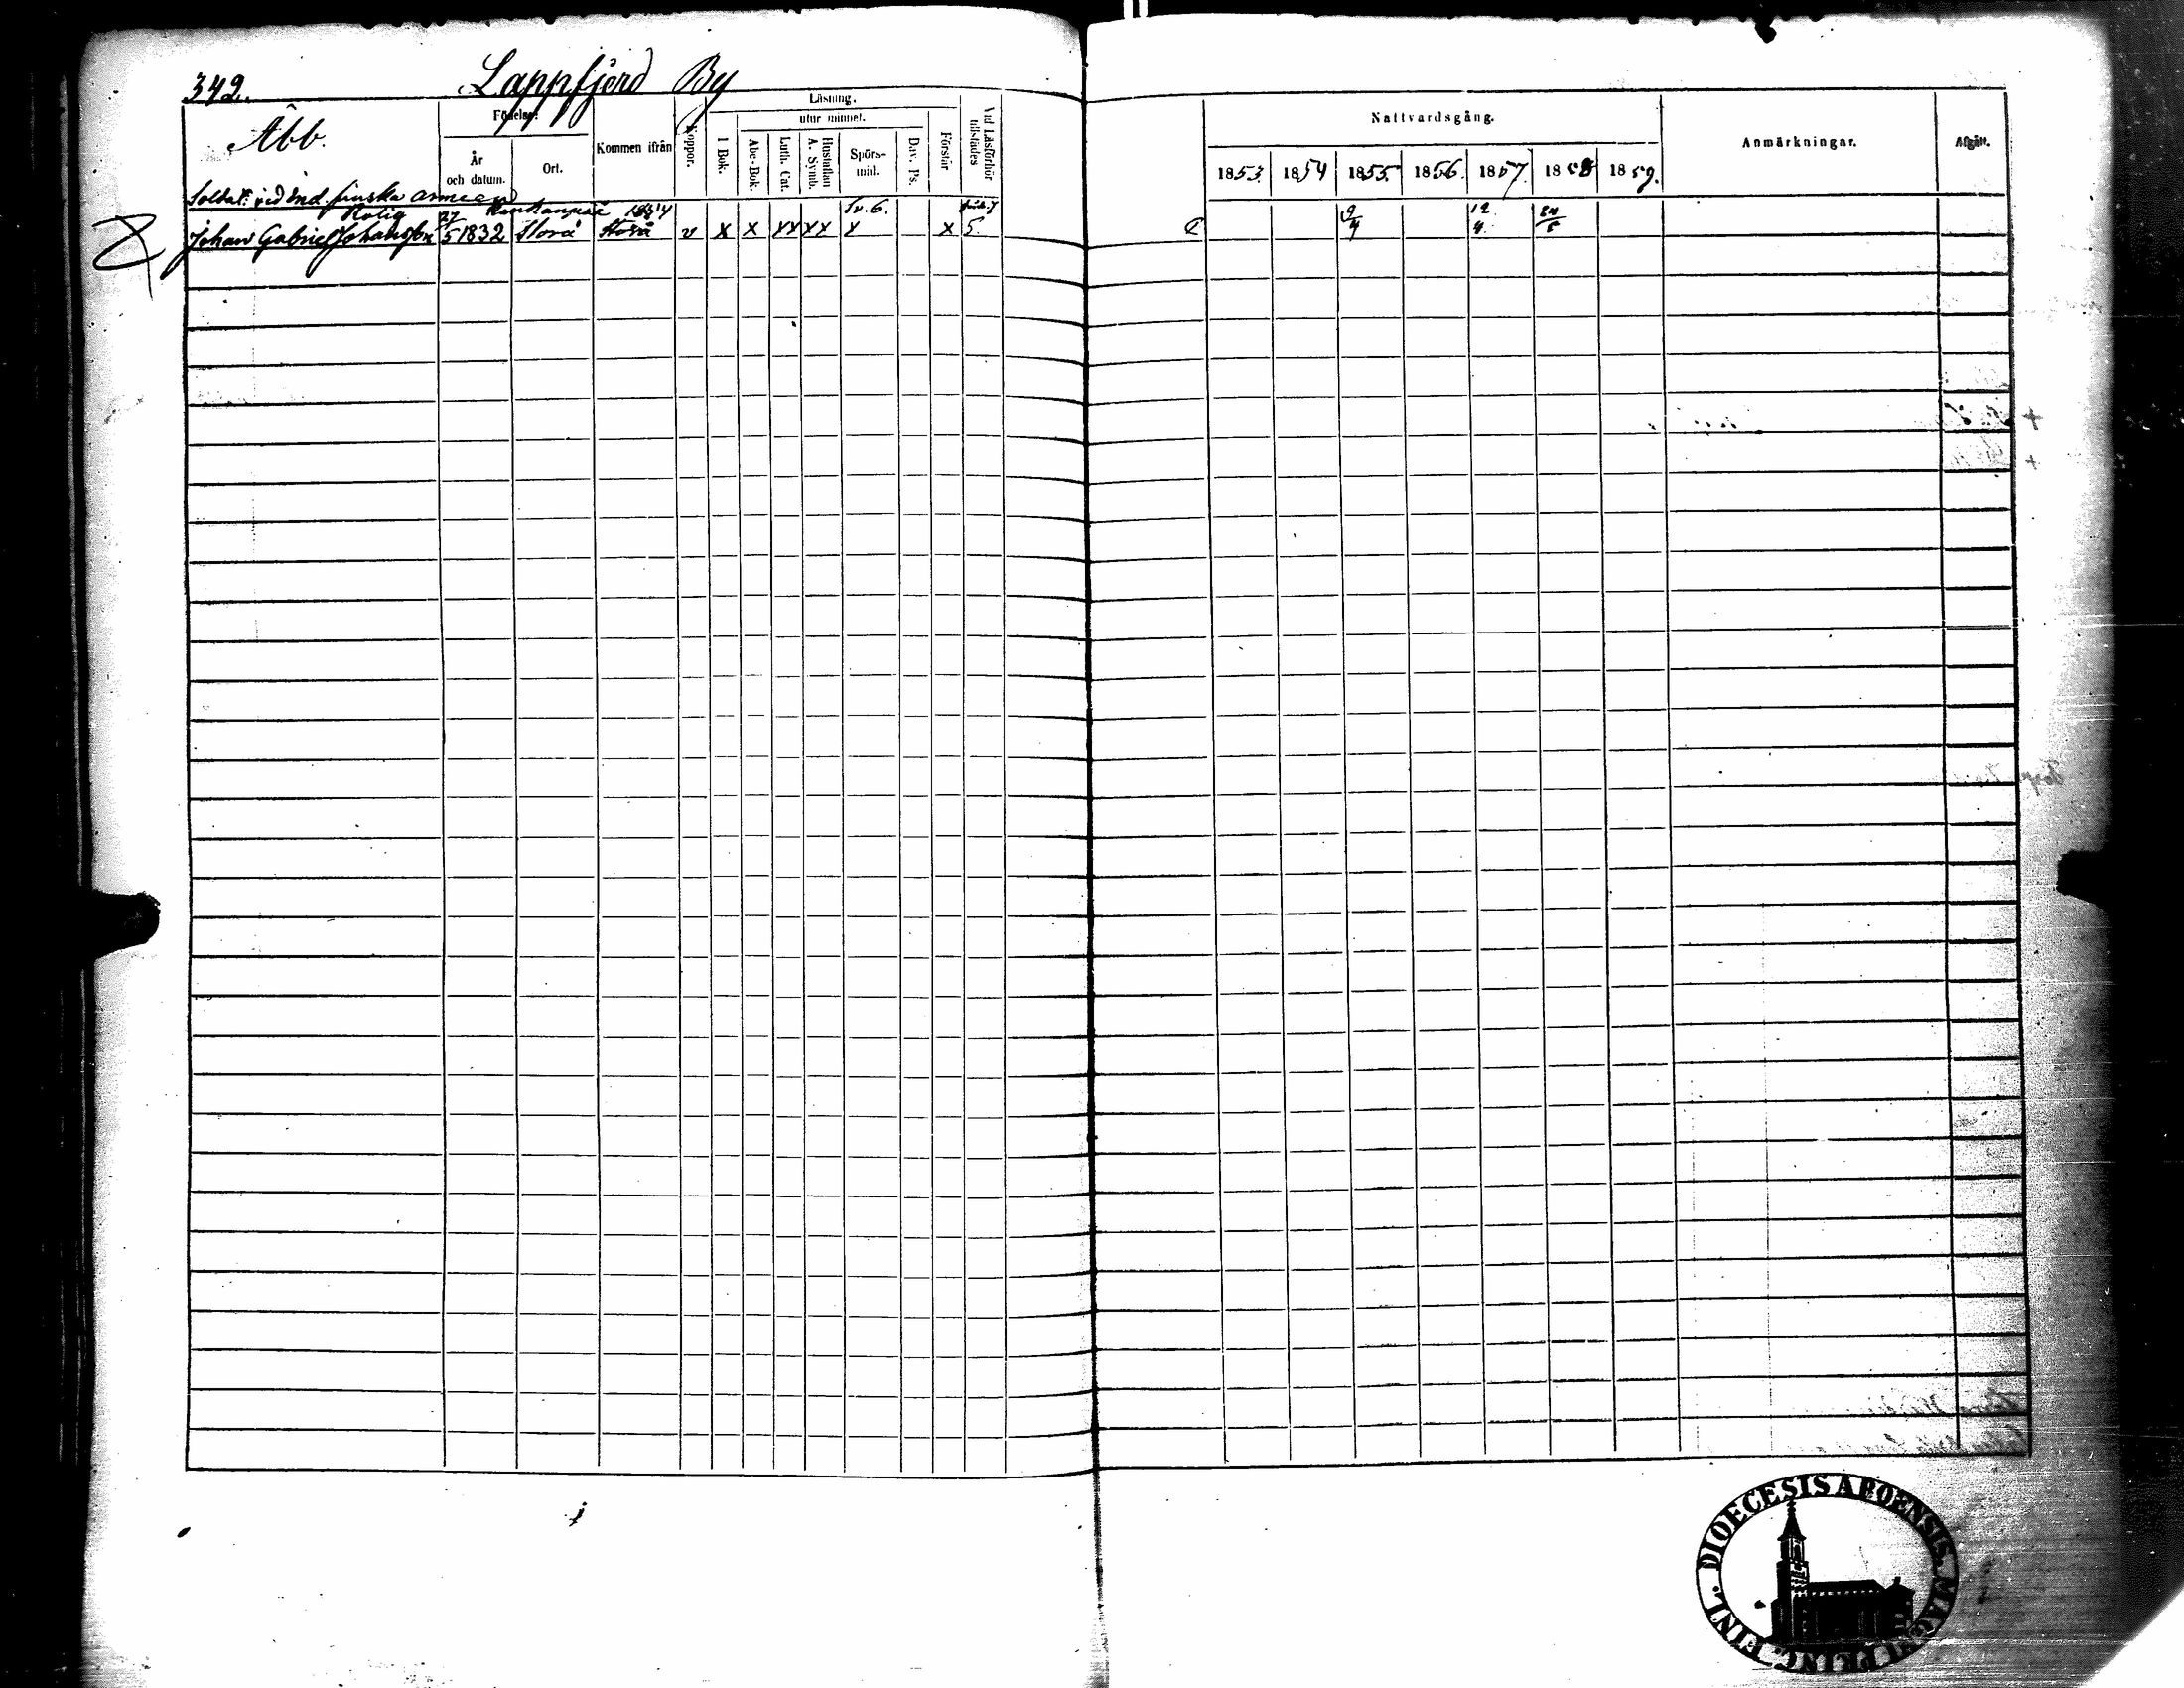 342.
Lappfjerd By
Åbb.
Födelse-
År och datum.
Ort.
Kommen ifrån
Koppor.
Läsning.
I Bok.
utur minnet.
Abc-Bok.
Luth. Cat.
Hustaflan A. Symb.
Spörs-mål.
Dav. Ps.
Förstår
Vid Läsförhör tillstädes
Nattvardsgång.
1853. 1854 1855. 1856. 1857. 1858 1859.
Anmärkningar.
Afgått.
Soldat: vid Ind. finska armeen
Rolig 27 Sv. 6.
Johan Gabriel Johansson 5 1832 Storå Storå v x x xx xx x x 5.
9/4 12/4
DIOECESIS ABOENSIS. MAGNI PRINC. FINL.